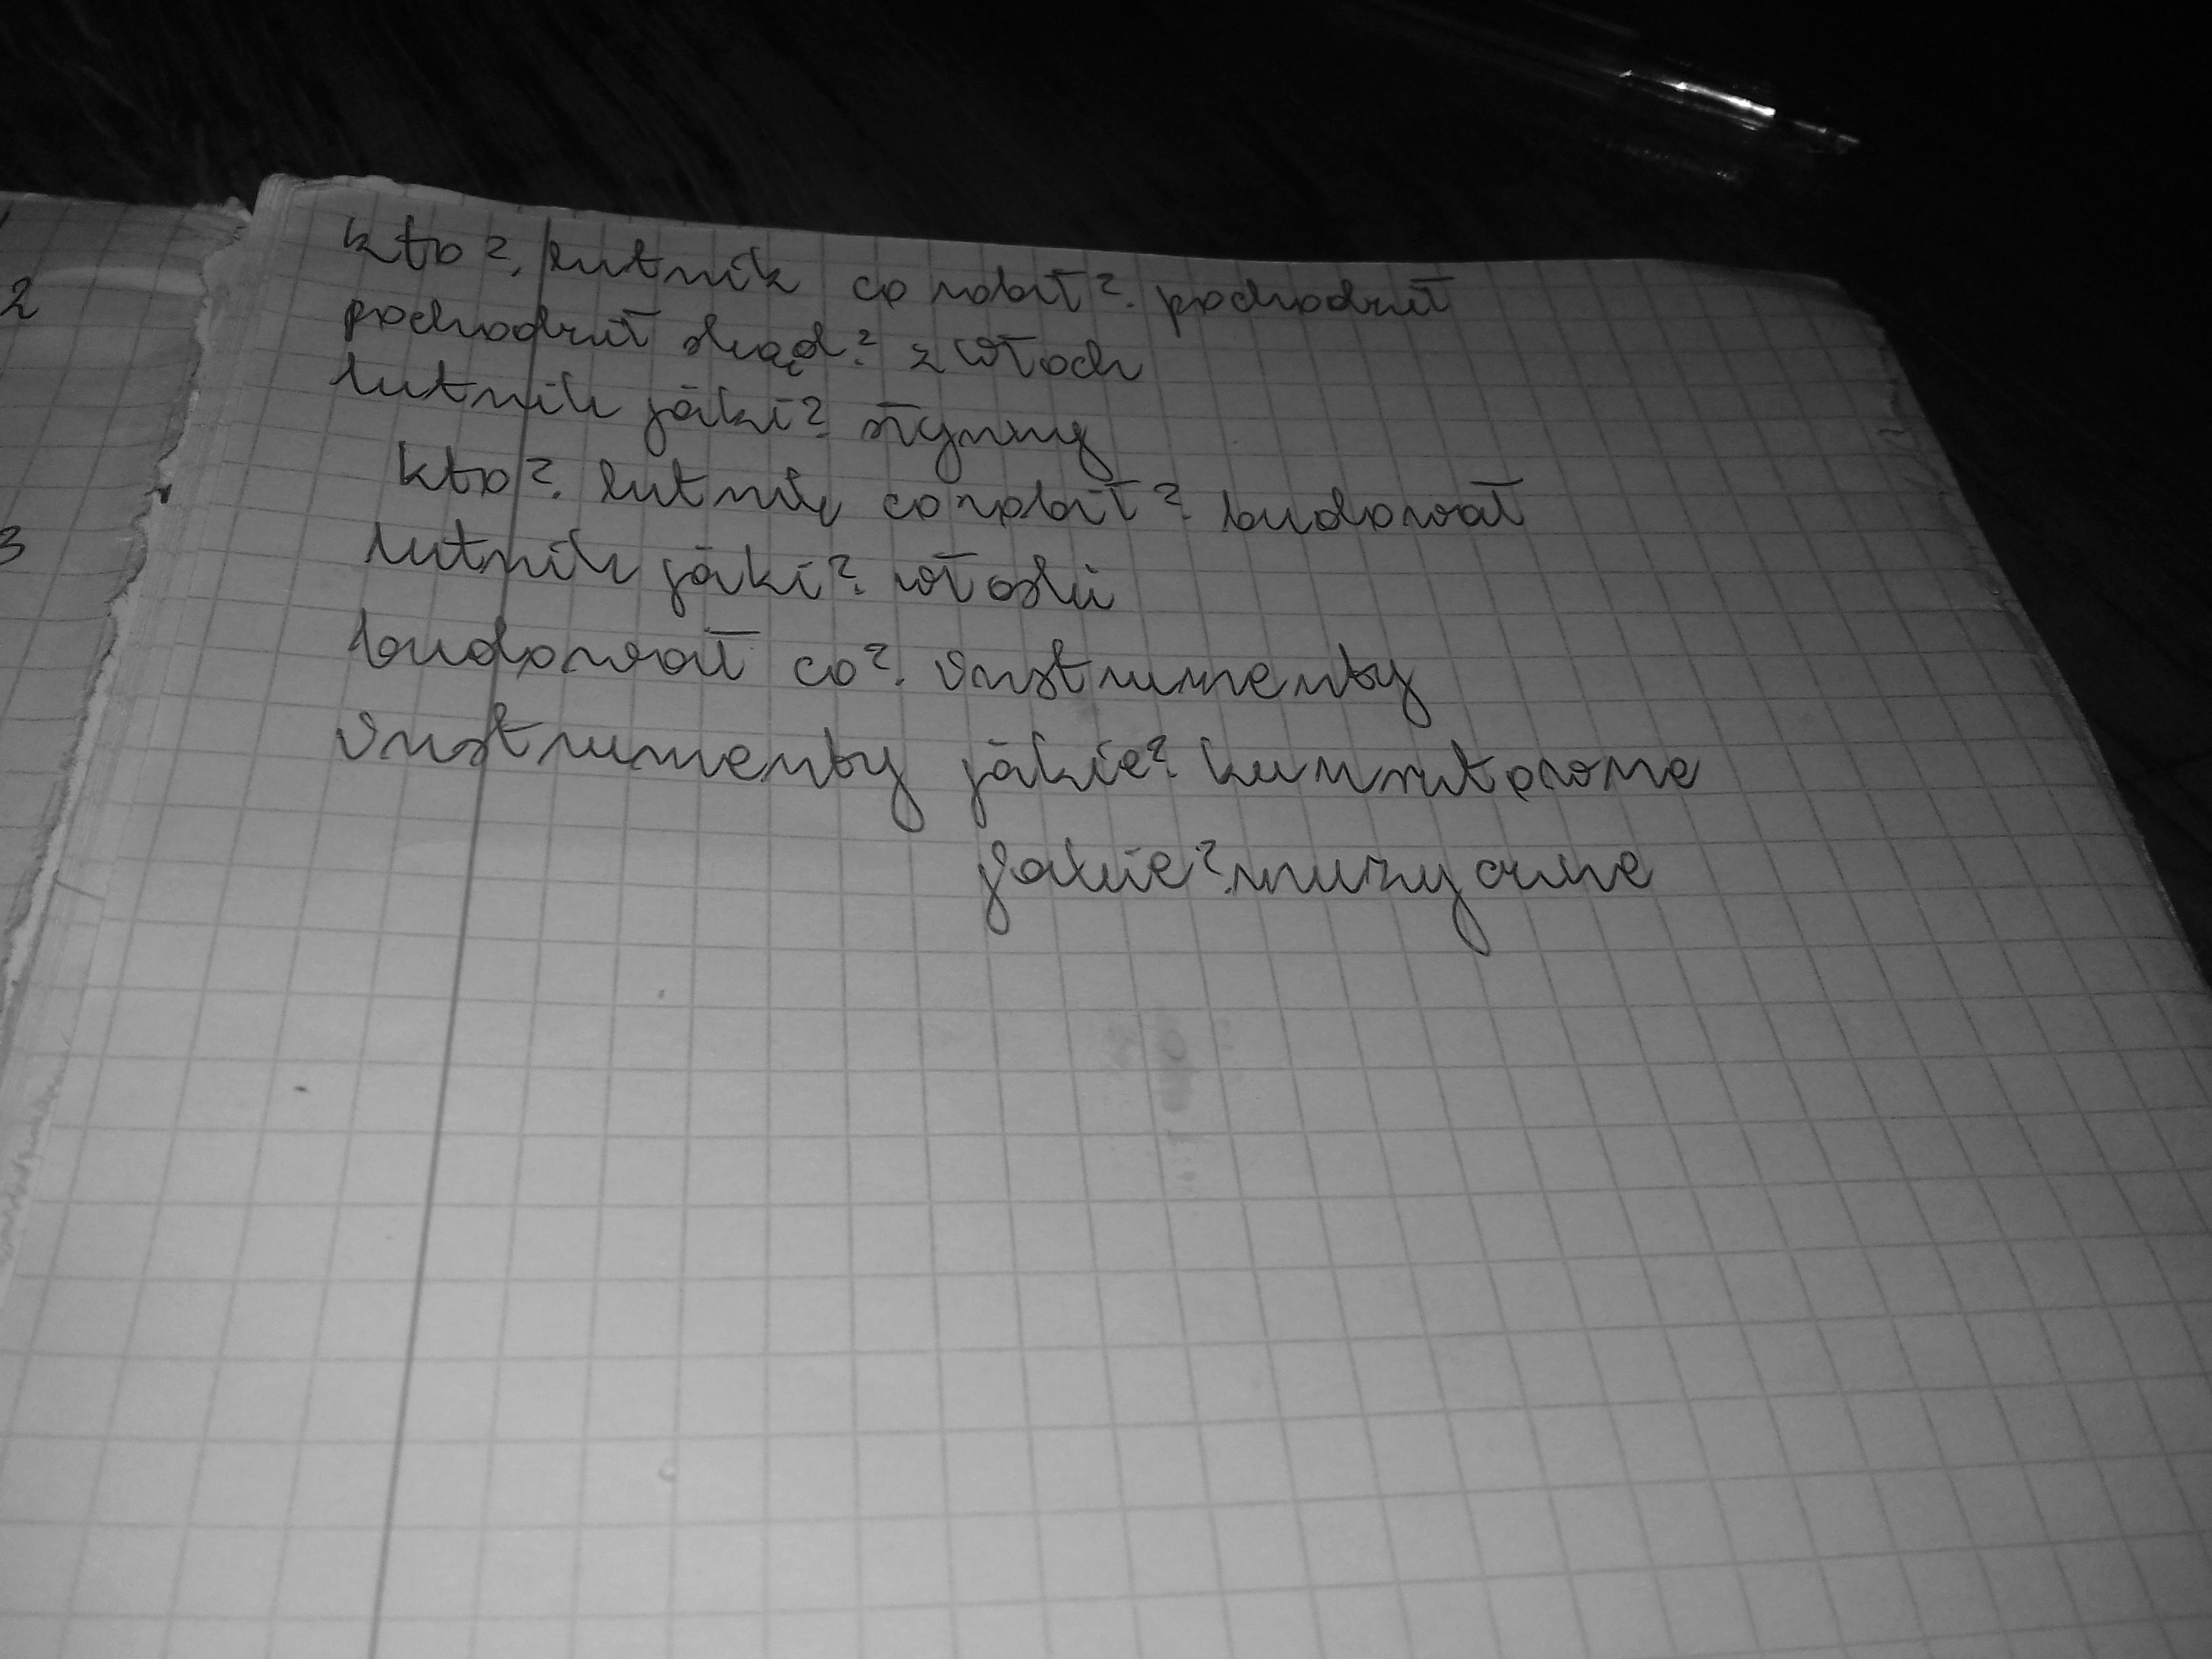 kto? lutnik co robił? pochodził
pochodził skąd? z Włoch
lutnik jaki? słynny
kto? lutnik co robił? budował
lutnik jaki? włoski
budował co? instrumenty
instrumenty jakie? kunsztowne
jakie? muzyczne
2
3